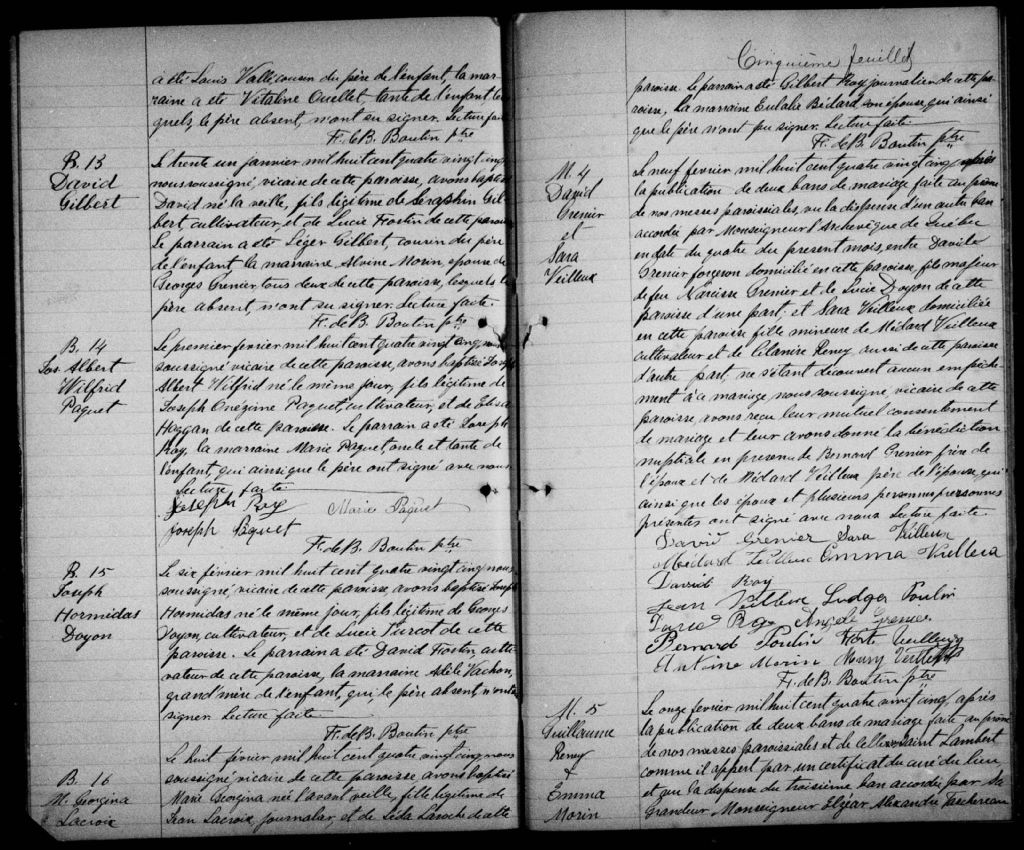 a été Louis Vallé cousin du père de l'enfant, la mar-
raine a été Vitaline Ouellet, tante de l'enfant les
quels, le père absent, n'ont su signer. Lecture faite
F. de B. Boutin ptre
B. 13
David
Gilbert
Le trente un janvier mil huit cent quatre vingt cinq
nous soussigné, vicaire de cette paroisse, avons baptisé
David né la veille, fils légitime de Séraphin Gil-
bert, cultivateur, et de Lucie Fortin de cette paroisse
Le parrain a été Léger Gilbert, cousin du père
de l'enfant, la marraine Alvine Morin, épouse de
Georges Grenier tous deux de cette paroisse, lesquels le
père absent, n'ont su signer. Lecture faite.
F. de B. Boutin ptre
B. 14
Jos. Albert
Wilfrid
Paquet
Le premier fevrier mil huit cent quatre vingt cinq nous
soussigné vicaire de cette paroisse, avons baptisé Joseph
Albert Wilfrid né le même jour, fils légitime de
Joseph Onégime Paquet, cultivateur, et de Elisa
Haggan de cette paroisse. Le parrain a été Joseph
Roy, la marraine Marie Paquet, oncle et tante de
l'enfant, qui ainsi que le père ont signé avec nous
Lecture faite
Joseph Roy Marie Paquet
Joseph Paquet
F. de B. Boutin ptre
B. 15
Joseph
Hormidas
Doyon
Le six février mil huit cent quatre vingt cinq nous
soussigné vicaire de cette paroisse, avons baptisé Joseph
Hormidas né le même jour, fils légitime de Georges
Doyon, cultivateur, et de Lucie Turcot de cette
paroisse. Le parrain a été David Fortin, culti
vateur de cette paroisse, la marraine Adèle Vachon,
grand'mère de l'enfant, qui, le père absent, n'ont su
signer. Lecture faite
F. de B. Boutin ptre
B. 16
M. Georgina
Lacroix
Le huit février mil huit cent quatre vingt cinq nous
soussigné vicaire de cette paroisse avons baptisé
Marie Georgina née l'avant veille, fille légitime de
Jean Lacroix, journalier, et de Léda Laroche de cette
Cinquième feuillet
paroisse. Le parrain a été Gilbert Roy journalier de cette pa
roisse, la marraine Eulalie Bédard, son épouse, qui ainsi
que le père n'ont pu signer. Lecture faite
F. de B. Boutin ptre
M. 4
David
Grenier
et
Sara
Veilleux
Le neuf fevrier mil huit cent quatre vingt cinq, après
la publication de deux bans de mariage faite au prône
de nos messes paroissiales, vu la dispense d'un autre ban
accordée par Monseigneur l'Archevêque de Québec
en date du quatre du present mois, entre David
Grenier forgeron domicilié en cette paroisse, fils majeur
de feu Narcisse Grenier et de Lucie Doyon de cette
paroisse d'une part; et Sara Veilleux domiciliée
en cette paroisse fille mineure de Médard Veilleux
cultivateur et de Célanire Remy aussi de cette paroisse
d'autre part, ne s'étant découvert aucun empêche
ment à ce mariage nous soussigné, vicaire de cette
paroisse, avons reçu leur mutuel consentement
de mariage et leur avons donné la bénédiction
nuptiale en presence de Bernard Grenier frère de
l'époux et de Médard Veilleux père de l'épouse, qui
ainsi que les époux et plusieurs personnes personnes
présentes ont signé avec nous. Lecture faite.
David Grenier Sara Veilleux
Médard Veilleux Emma Veilleux
David Roy
Jean Veilleux Ludger Poulin
Roy Angele Grenier
Bernard Poulin Veilleux
Antoine Morin Veilleux
F. de B. Boutin ptre
M. 5
Guillaume
Remy
+
Emma
Morin
Le onze fevrier mil huit cent quatre vingt cinq, après
la publication de deux bans de mariage faite au prône
de nos messes paroissiales et de celles de Saint Lambert
comme il appert par un certificat du curé du lieu,
et que la dispense du troisième ban accordée par Sa
Grandeur Monseigneur Elzéar Alexandre Taschereau